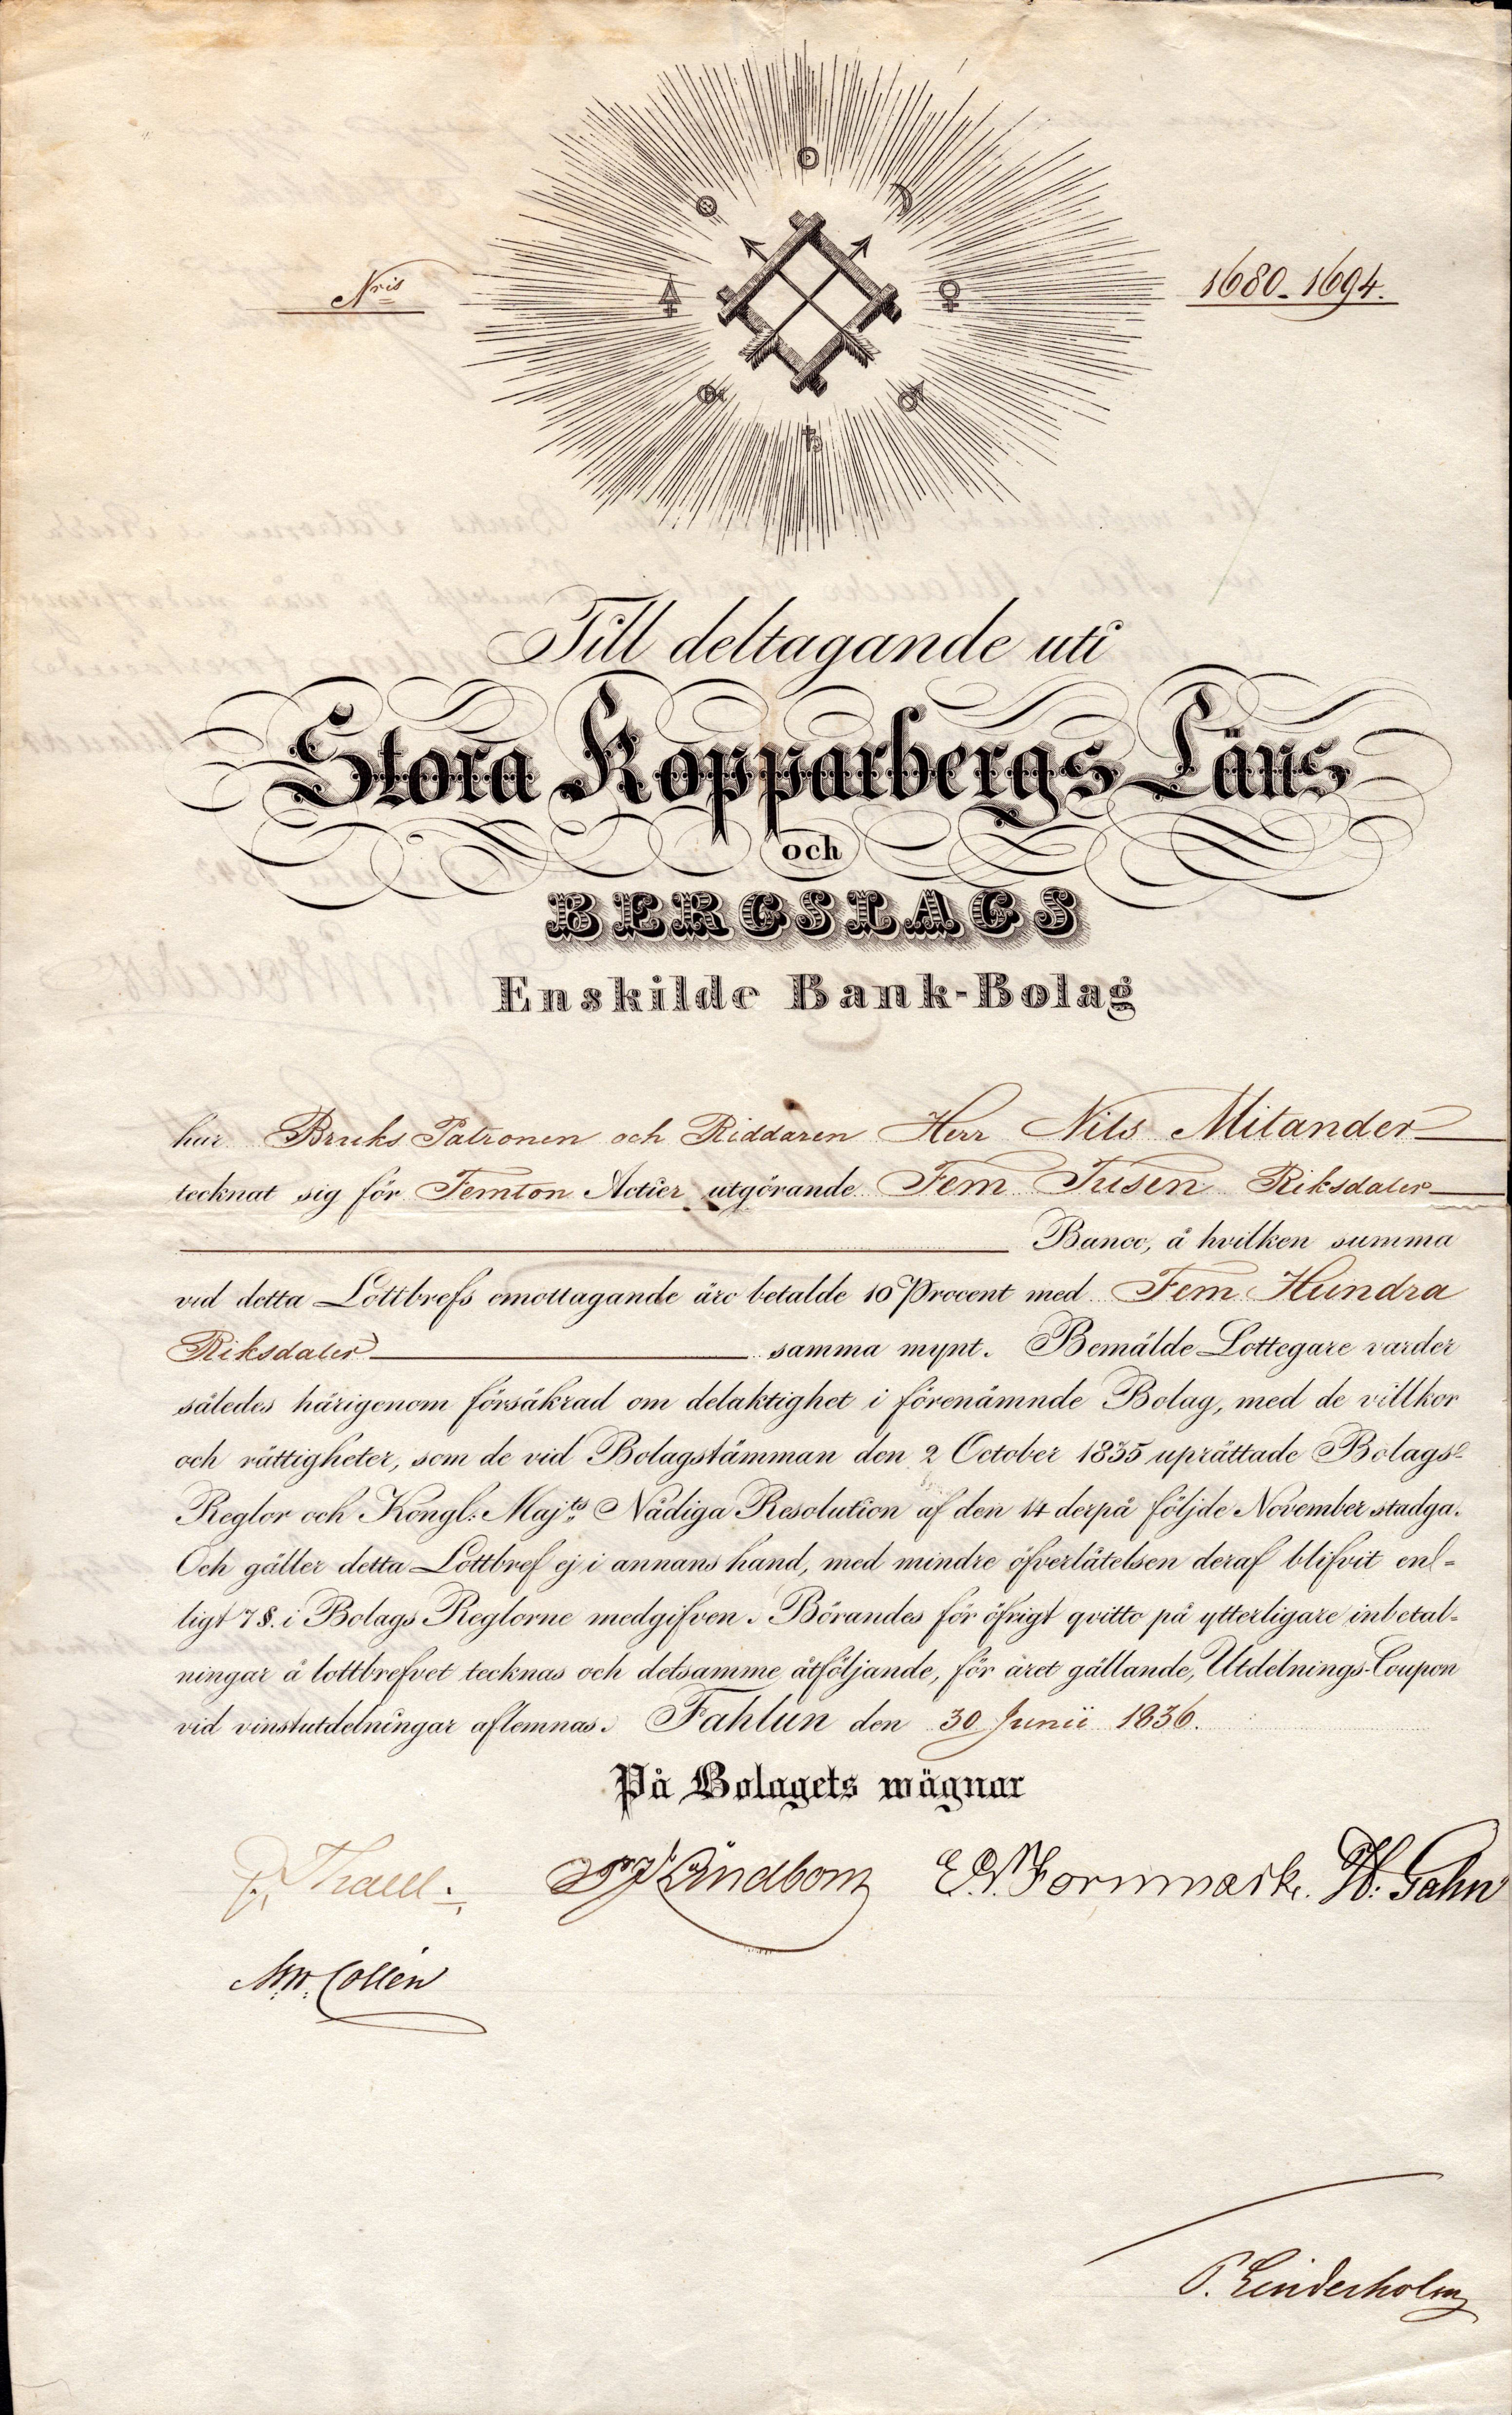 Nris 1680-1694.
Till deltagande uti
Stora Kopparbergs Läns
och
BERGSLAGS
Enskilde Bank-Bolag
har Bruks Patronen och Riddaren Herr Nils Mitander
tecknat sig för Femton Actier utgörande Fem Tusen Riksdaler
Banco, å hvilken summa
vid detta Lottbrefs emottagande äro betalde 10 Procent med Fem Hundra
Riksdaler samma mynt. Bemälde Lottegare varder
således härigenom försäkrad om delaktighet i förenämnde Bolag, med de villkor
och rättigheter, som de vid Bolagstämman den 2 October 1835 uprättade Bolags-
Reglor och Kongl: Maj:ts Nådiga Resolution af den 14 derpå följde November stadga.
Och gäller detta Lottbref ej i annans hand, med mindre öfverlåtelsen deraf blifvit en-
ligt 7 §. i Bolags Reglorne medgifven. Börandes för öfrigt qvitto på ytterligare inbetal-
ningar å lottbrefvet tecknas och detsamme åtföljande, för året gällande, Utdelnings-Coupon
vid vinstutdelningar aflemnas. Fahlun den 30 Junii 1836.
På Bolagets wägnar
Lindbom E. N. Fornmark. H: Gahn
Collén
P. Linderholm